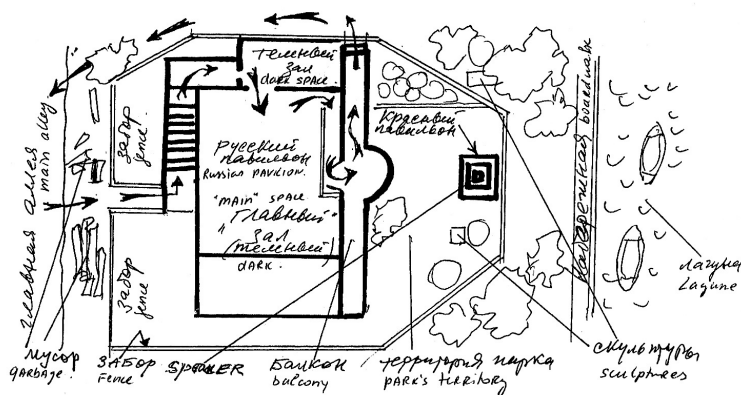 Темный
зал
DARK SPACE.
забор
fence
Красный
павильон
Русский
павильон
Russian PAVILION.
"MAIN" SPACE
"Главный"
Зал
(темный)
DARK.
главная аллея
main alley
забор
fence
Набережная boardwalk
Лагуна
Lagune
Мусор
GARBAGE.
ЗАБОР
Fence
SPEAKER
Балкон
balcony
территория парка
PARK'S TERRITORY
скульптуры
sculptures